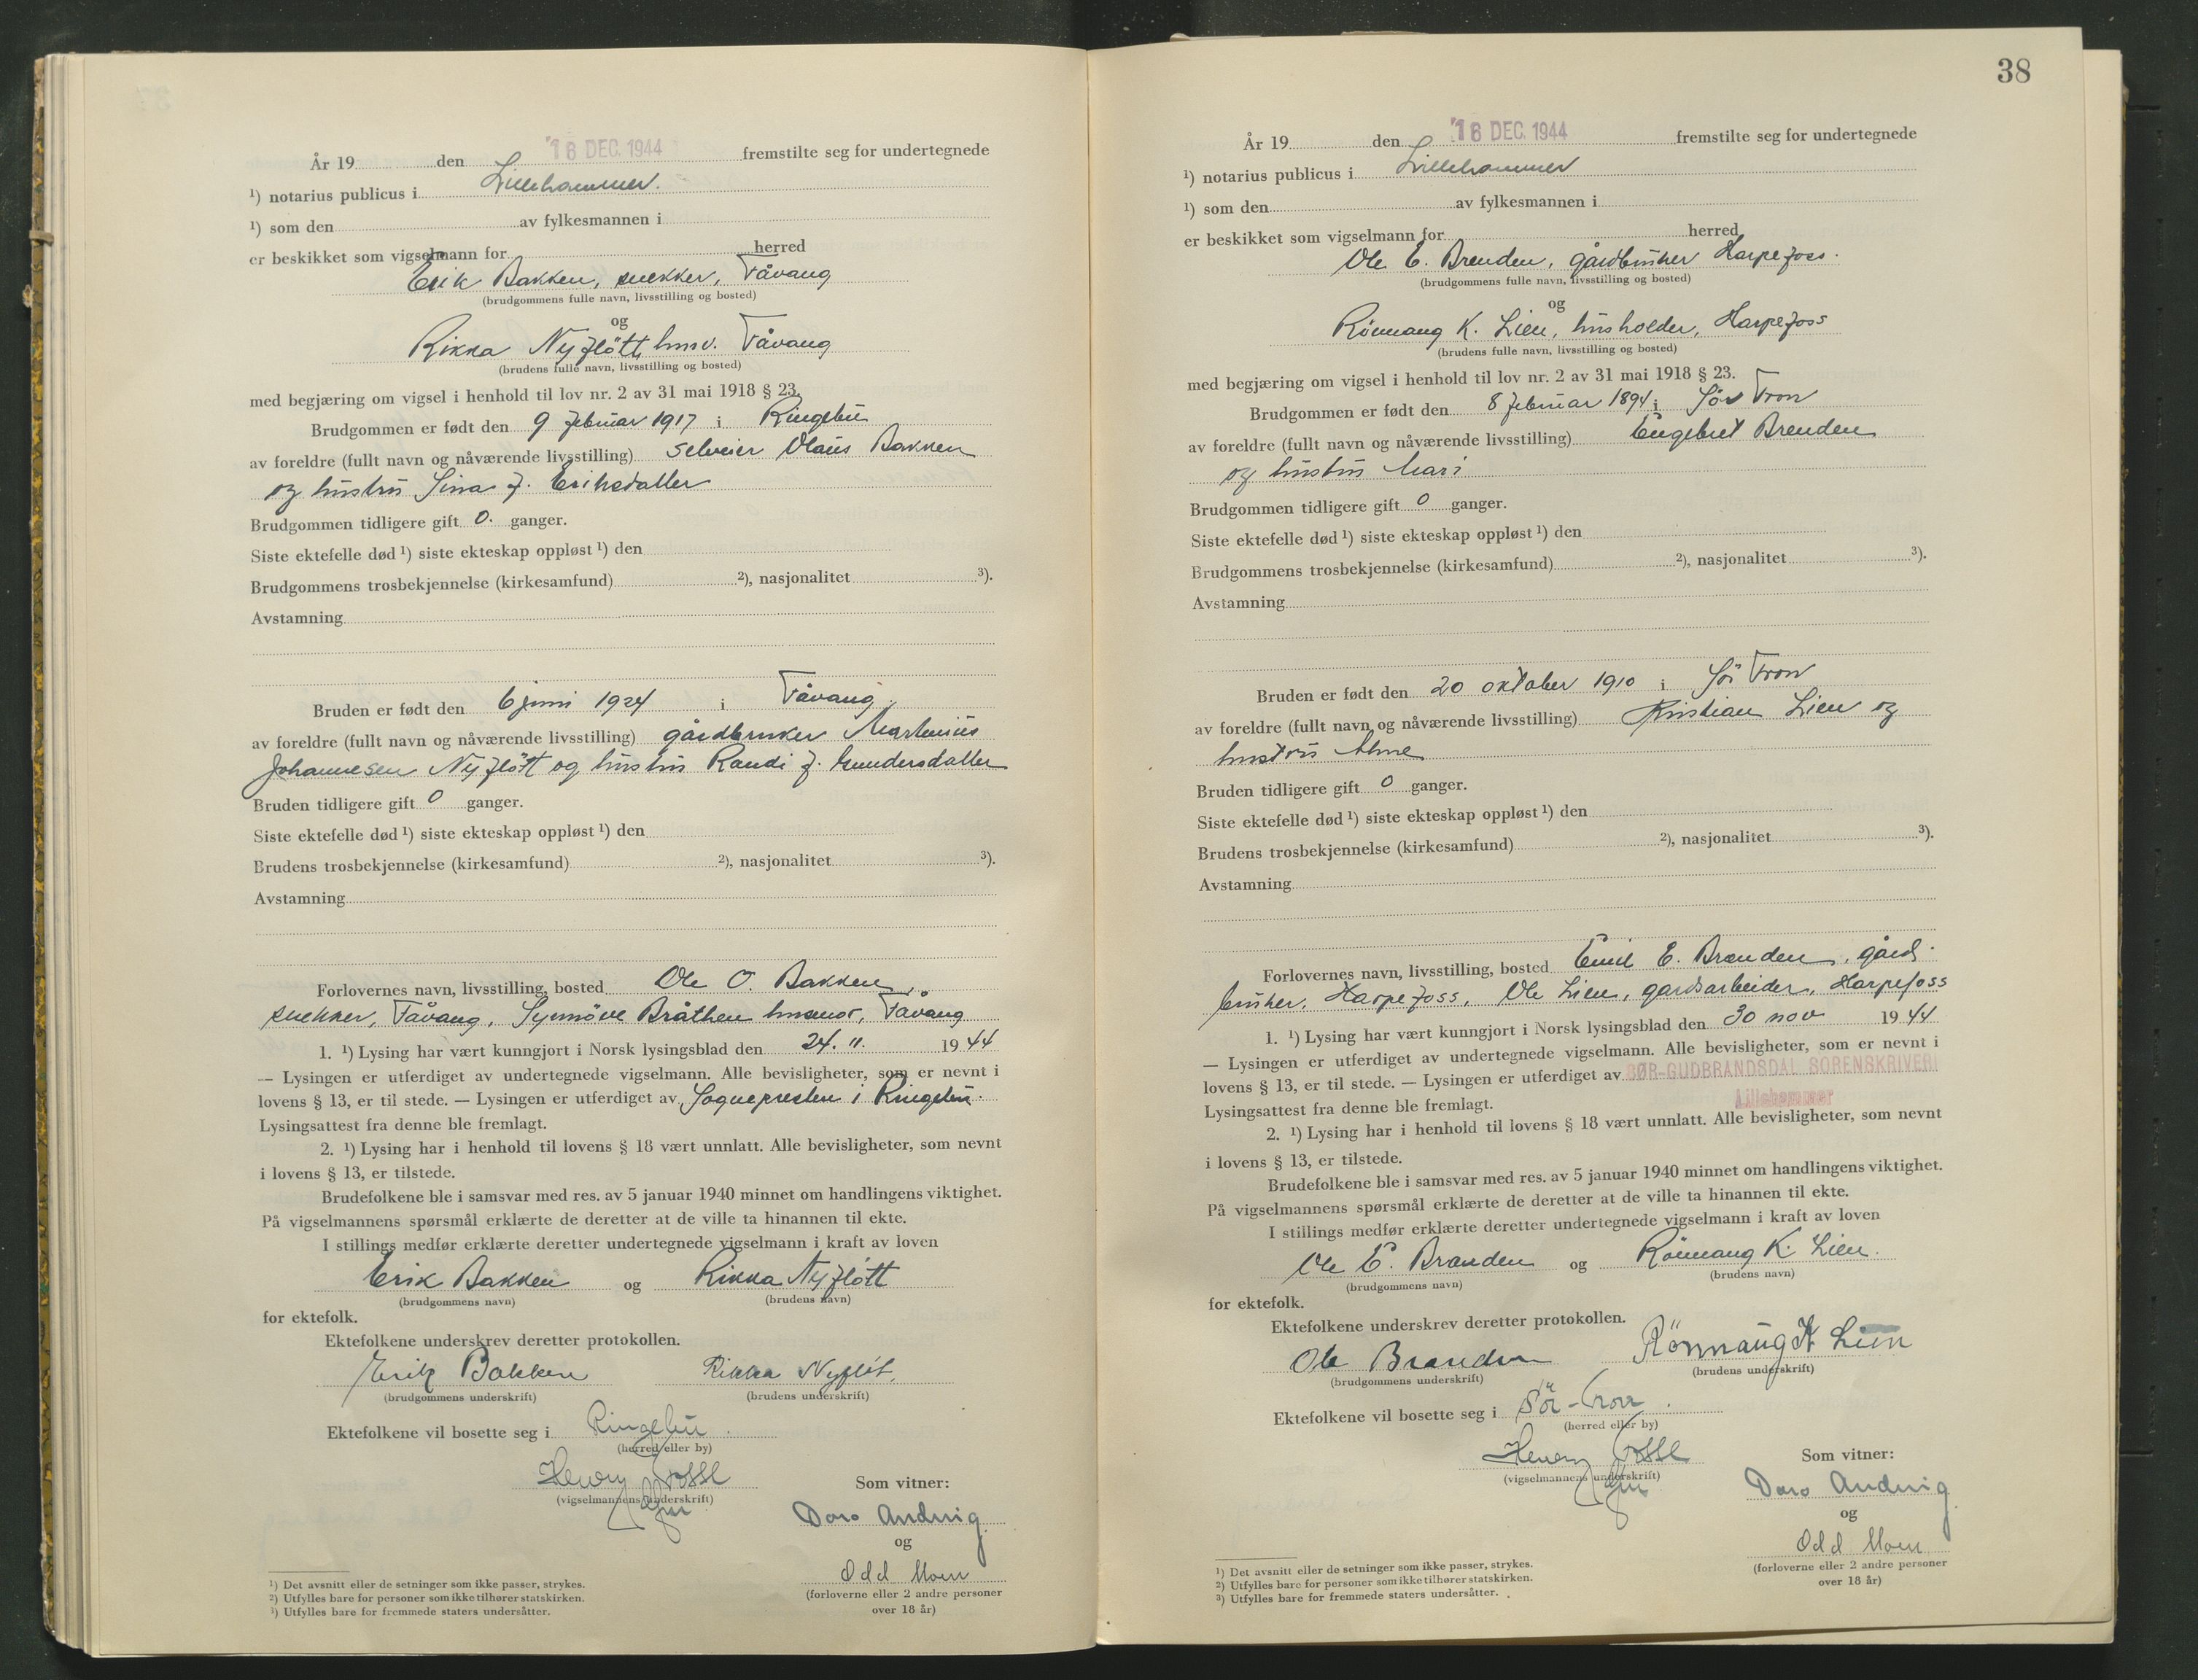 År 19 den 16 DEC. 1944 fremstilte seg for undertegnede
¹) notarius publicus i Lillehammer.
¹) som den av fylkesmannen i
er beskikket som vigselmann for herred
Erik Bakken, snekker, Fåvang
(brudgommens fulle navn, livsstilling og bosted)
og
Rikka Nyfløtt, husv. Fåvang
(brudens fulle navn, livsstilling og bosted)
med begjæring om vigsel i henhold til lov nr. 2 av 31 mai 1918 § 23.
Brudgommen er født den 9 februar 1917 i Ringebu
av foreldre (fullt navn og nåværende livsstilling) selveier Olaus Bakken
og hustru Sina f. Eriksdatter
Brudgommen tidligere gift 0. ganger.
Siste ektefelle død ¹) siste ekteskap oppløst ¹) den
Brudgommens trosbekjennelse (kirkesamfund) ²), nasjonalitet ³).
Avstamning
Bruden er født den 6 juni 1924 i Fåvang.
av foreldre (fullt navn og nåværende livsstilling) gårdbruker Martinius
Johannesen Nyfløtt og hustru Randi f. Gundersdatter
Bruden tidligere gift 0 ganger.
Siste ektefelle død ¹) siste ekteskap oppløst ¹) den
Brudens trosbekjennelse (kirkesamfund) ²), nasjonalitet ³).
Avstamning
Forlovernes navn, livsstilling, bosted Ole O. Bakken,
snekker, Fåvang, Synnöve Bråthen husmor, Fåvang
1. ¹) Lysing har vært kunngjort i Norsk lysingsblad den 24. 11. 1944
— Lysingen er utferdiget av undertegnede vigselmann. Alle bevisligheter, som er nevnt i
lovens § 13, er til stede. — Lysingen er utferdiget av Sognepresten i Ringebu.
Lysingsattest fra denne ble fremlagt.
2. ¹) Lysing har i henhold til lovens § 18 vært unnlatt. Alle bevisligheter, som nevnt
i lovens § 13, er tilstede.
Brudefolkene ble i samsvar med res. av 5 januar 1940 minnet om handlingens viktighet.
På vigselmannens spørsmål erklærte de deretter at de ville ta hinannen til ekte.
I stillings medfør erklærte deretter undertegnede vigselmann i kraft av loven
Erik Bakken og Rikka Nyflött
(brudgommens navn) (brudens navn)
for ektefolk.
Ektefolkene underskrev deretter protokollen.
Erik Bakken Rikka Nyfløt.
(brudgommens underskrift) (brudens underskrift)
Ektefolkene vil bosette seg i Ringebu.
(herred eller by)
Henry
(vigselmannens underskrift)
Som vitner:
Doro Andvig
og
Odd Moen
(forloverne eller 2 andre personer
over 18 år)
¹) Det avsnitt eller de setninger som ikke passer, strykes.
²) Utfylles bare for personer som ikke tilhører statskirken.
³) Utfylles bare for fremmede staters undersåtter.
38
År 19 den 16 DEC. 1944 fremstilte seg for undertegnede
¹) notarius publicus i Lillehammer
¹) som den av fylkesmannen i
er beskikket som vigselmann for herred
Ole E. Brenden, gårdbruker Harpefoss.
(brudgommens fulle navn, livsstilling og bosted)
og
Rönnaug K. Lien, husholder, Harpefoss
(brudens fulle navn, livsstilling og bosted)
med begjæring om vigsel i henhold til lov nr. 2 av 31 mai 1918 § 23.
Brudgommen er født den 8 februar 1894 i Sør Fron
av foreldre (fullt navn og nåværende livsstilling) Engebret Brenden
og hustru Mari
Brudgommen tidligere gift 0 ganger.
Siste ektefelle død ¹) siste ekteskap oppløst ¹) den
Brudgommens trosbekjennelse (kirkesamfund) ²), nasjonalitet ³).
Avstamning
Bruden er født den 20 oktober 1910 i Sör Fron
av foreldre (fullt navn og nåværende livsstilling) Kristian Lien og
hustru Ahne
Bruden tidligere gift 0 ganger.
Siste ektefelle død ¹) siste ekteskap oppløst ¹) den
Brudens trosbekjennelse (kirkesamfund) ²), nasjonalitet ³).
Avstamning
Forlovernes navn, livsstilling, bosted Emil E. Brænden, gård-
bruker, Harpefoss, Ole Lien, gardsarbeider, Harpefoss
1. ¹) Lysing har vært kunngjort i Norsk lysingsblad den 30 nov 1944
— Lysingen er utferdiget av undertegnede vigselmann. Alle bevisligheter, som er nevnt i
lovens § 13, er til stede. — Lysingen er utferdiget av SØR-GUDBRANDSDAL SORENSKRIVERI
Lillehammer
Lysingsattest fra denne ble fremlagt.
2. ¹) Lysing har i henhold til lovens § 18 vært unnlatt. Alle bevisligheter, som nevnt
i lovens § 13, er tilstede.
Brudefolkene ble i samsvar med res. av 5 januar 1940 minnet om handlingens viktighet.
På vigselmannens spørsmål erklærte de deretter at de ville ta hinannen til ekte.
I stillings medfør erklærte deretter undertegnede vigselmann i kraft av loven
Ole E. Brænden og Rönnaug K. Lien.
(brudgommens navn) (brudens navn)
for ektefolk.
Ektefolkene underskrev deretter protokollen.
Ole Brænden Rönnaug K Lien
(brudgommens underskrift) (brudens underskrift)
Ektefolkene vil bosette seg i Sör-Fron.
(herred eller by)
Henry
(vigselmannens underskrift)
Som vitner:
Doro Andvig
og
Odd Moen
(forloverne eller 2 andre personer
over 18 år)
¹) Det avsnitt eller de setninger som ikke passer, strykes.
²) Utfylles bare for personer som ikke tilhører statskirken.
³) Utfylles bare for fremmede staters undersåtter.